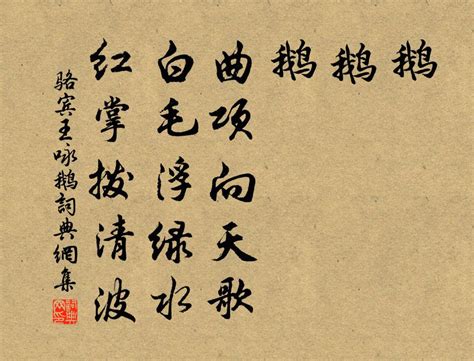 鹅鹅鹅
曲项向天歌
白毛浮绿水
红掌拨清波
骆宾王咏鹅詞典網集